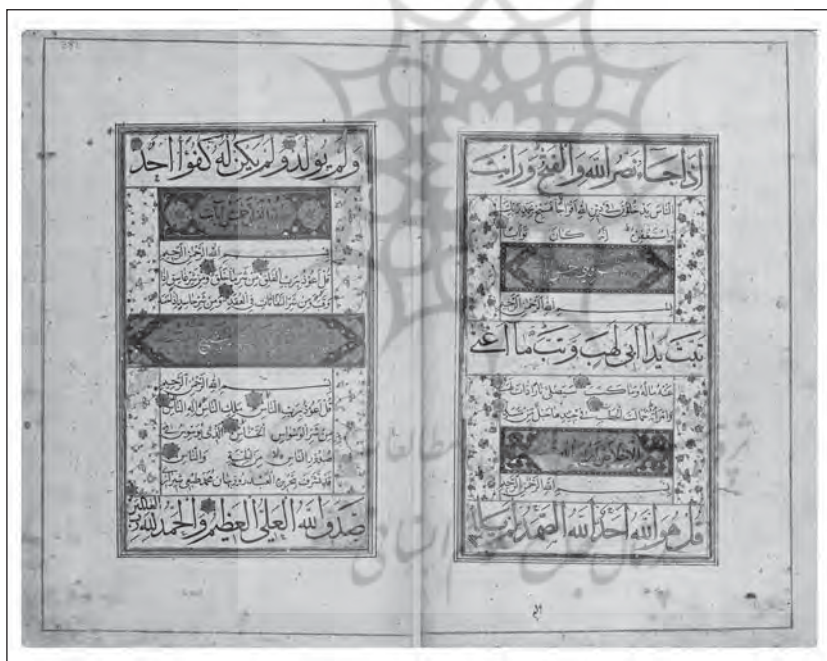 اذا جاء نصر الله والفتح ورايت
الناس يدخلون فى دين الله افواجا فسبح بحمد ربك
واستغفره انه كان توابا
بسم الله الرحمن الرحيم
تبت يدا ابى لهب وتب ما اغنى
عنه ماله وما كسب سيصلى نارا ذات لهب
وامراته حمالة الحطب فى جيدها حبل من مسد
الاخلاص
بسم الله الرحمن الرحيم
قل هو الله احد الله الصمد لم يلد
ولم يولد ولم يكن له كفوا احد
بسم الله الرحمن الرحيم
قل اعوذ برب الفلق من شر ما خلق ومن شر غاسق اذا
وقب ومن شر النفاثات فى العقد ومن شر حاسد اذا حسد
بسم الله الرحمن الرحيم
قل اعوذ برب الناس ملك الناس اله الناس
من شر الوسواس الخناس الذى يوسوس فى
صدور الناس من الجنة والناس
صدق الله العلى العظيم والحمد لله رب العالمين